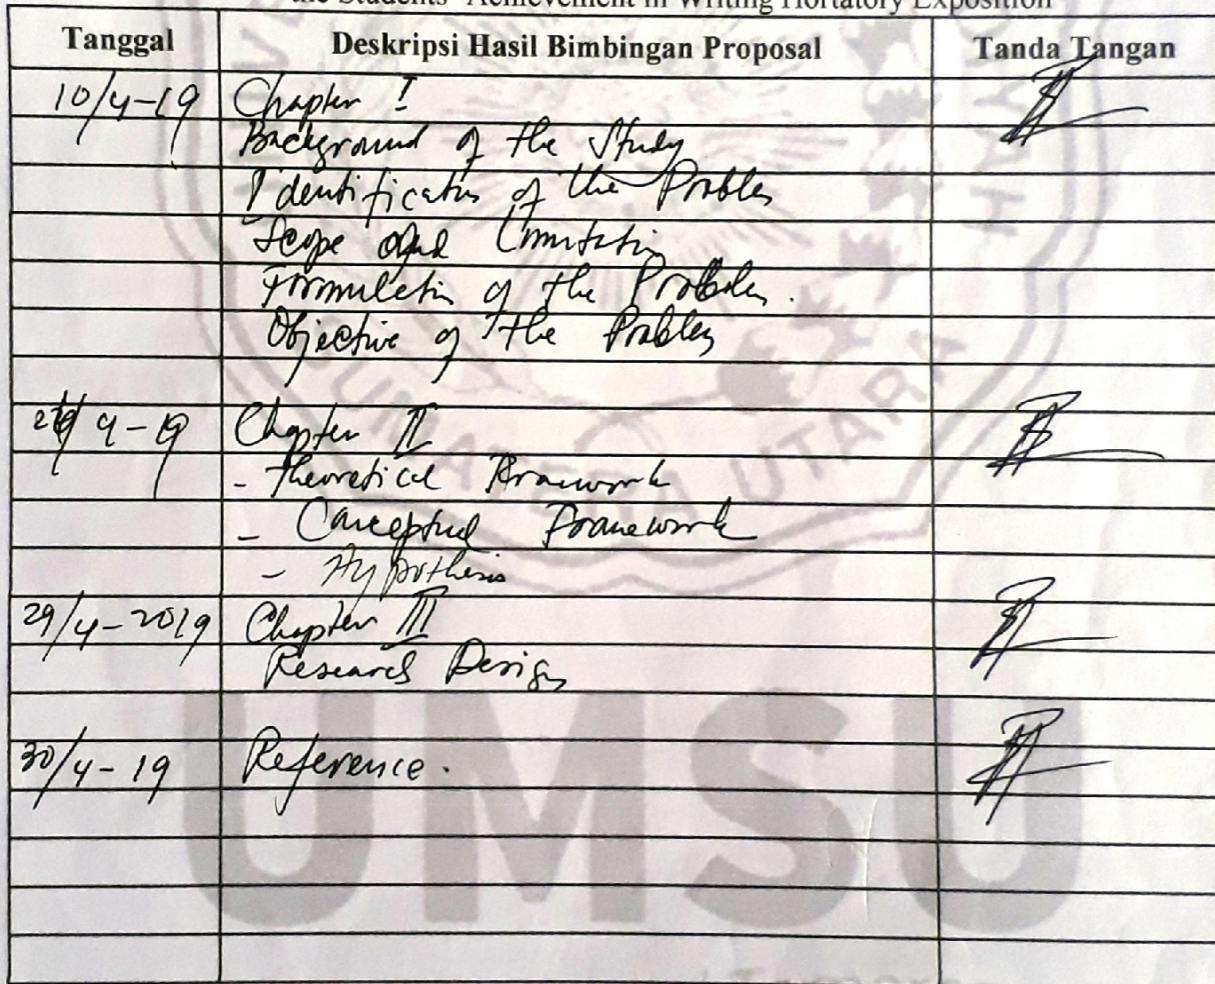 the Students' Achievement in Writing Hortatory Exposition
Tanggal Deskripsi Hasil Bimbingan Proposal Tanda Tangan
10/4-19 Chapter I
Background of the Study
Identification of the Problem
Scope and Limitation
Formulation of the Problem.
Objective of the Problem
4-19 Chapter II
- Theoretical Framework
- Conceptual Framework
- Hypothesis
29/4-2019 Chapter III
Research Design
30/4-19 Reference.
SUMATERA UTARA
UMSU